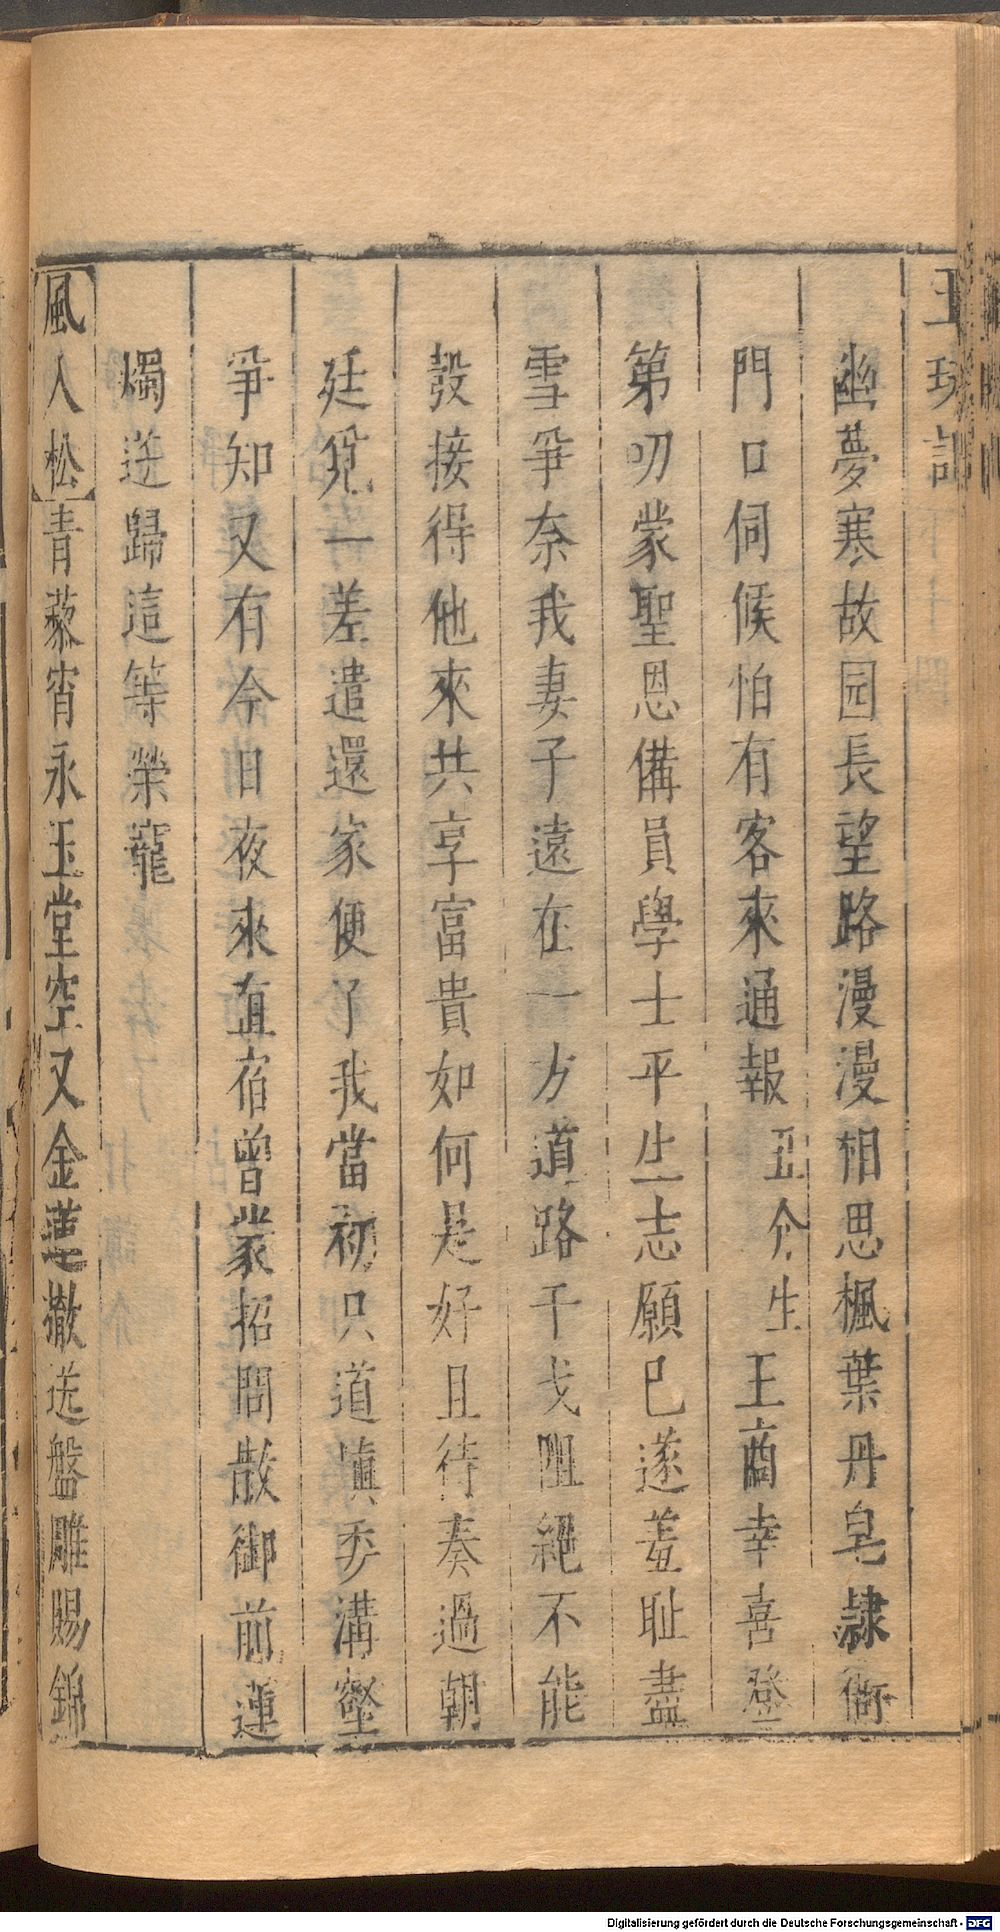 玉玦記 下 十四
幽夢寒故园長望路漫漫相思楓葉丹皂隷衙
門口伺候怕有客來通報 丑介生 王商幸喜登
第叨蒙聖恩備員學士平生志願巳遂羞耻盡
雪爭奈我妻子遠在一方道路干戈阻絕不能
彀接得他來共享富貴如何是好且待奏過朝
廷覓一差遣還家便了我當初只道塡委溝壑
爭知又有今日夜來直宿曾蒙招問散御前蓮
燭送歸這等榮寵
風入松青藜宵永玉堂空又金蓮撤送盤雕賜錦
Digitalisierung gefördert durch die Deutsche Forschungsgemeinschaft - DFG